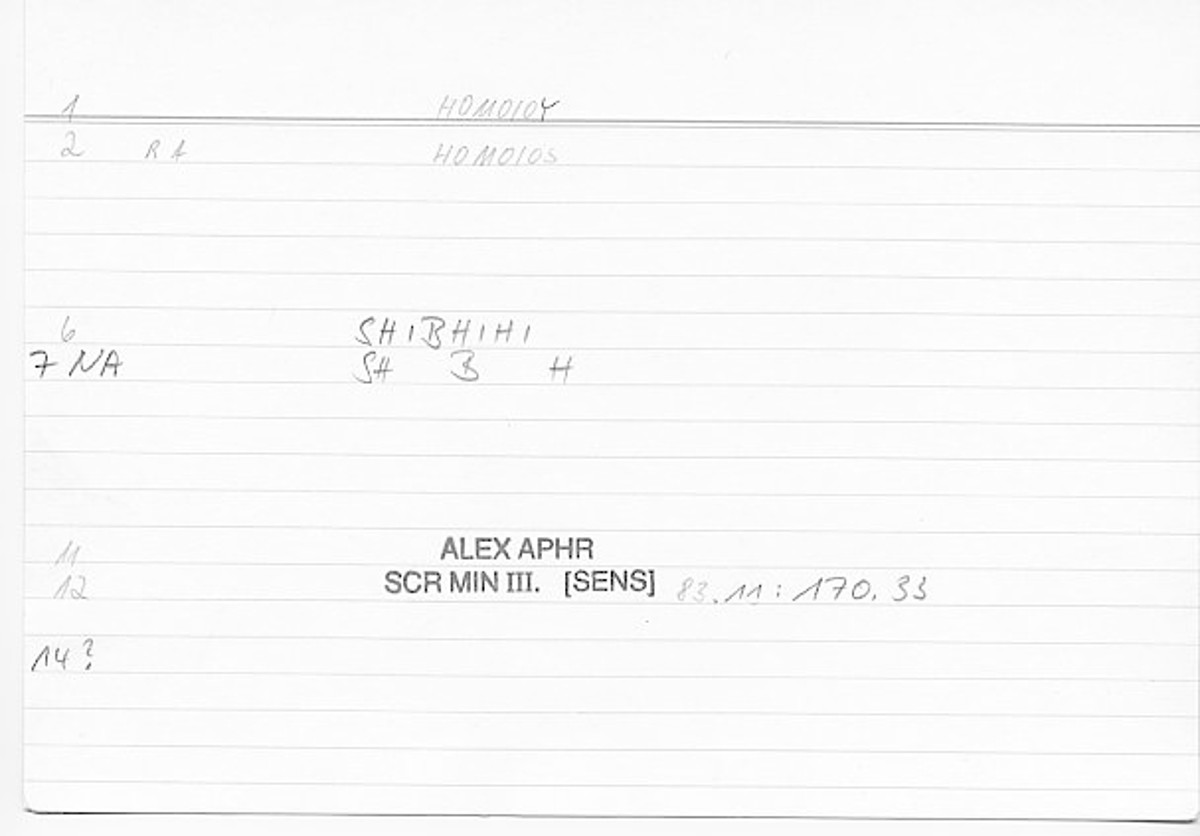 1 HOMOIOY
2 RA HOMOIOS
6 SHIBHIHI
7 NA SH B H
11 ALEX APHR
12 SCR MIN III. [SENS] 83.11 : 170.33
14?